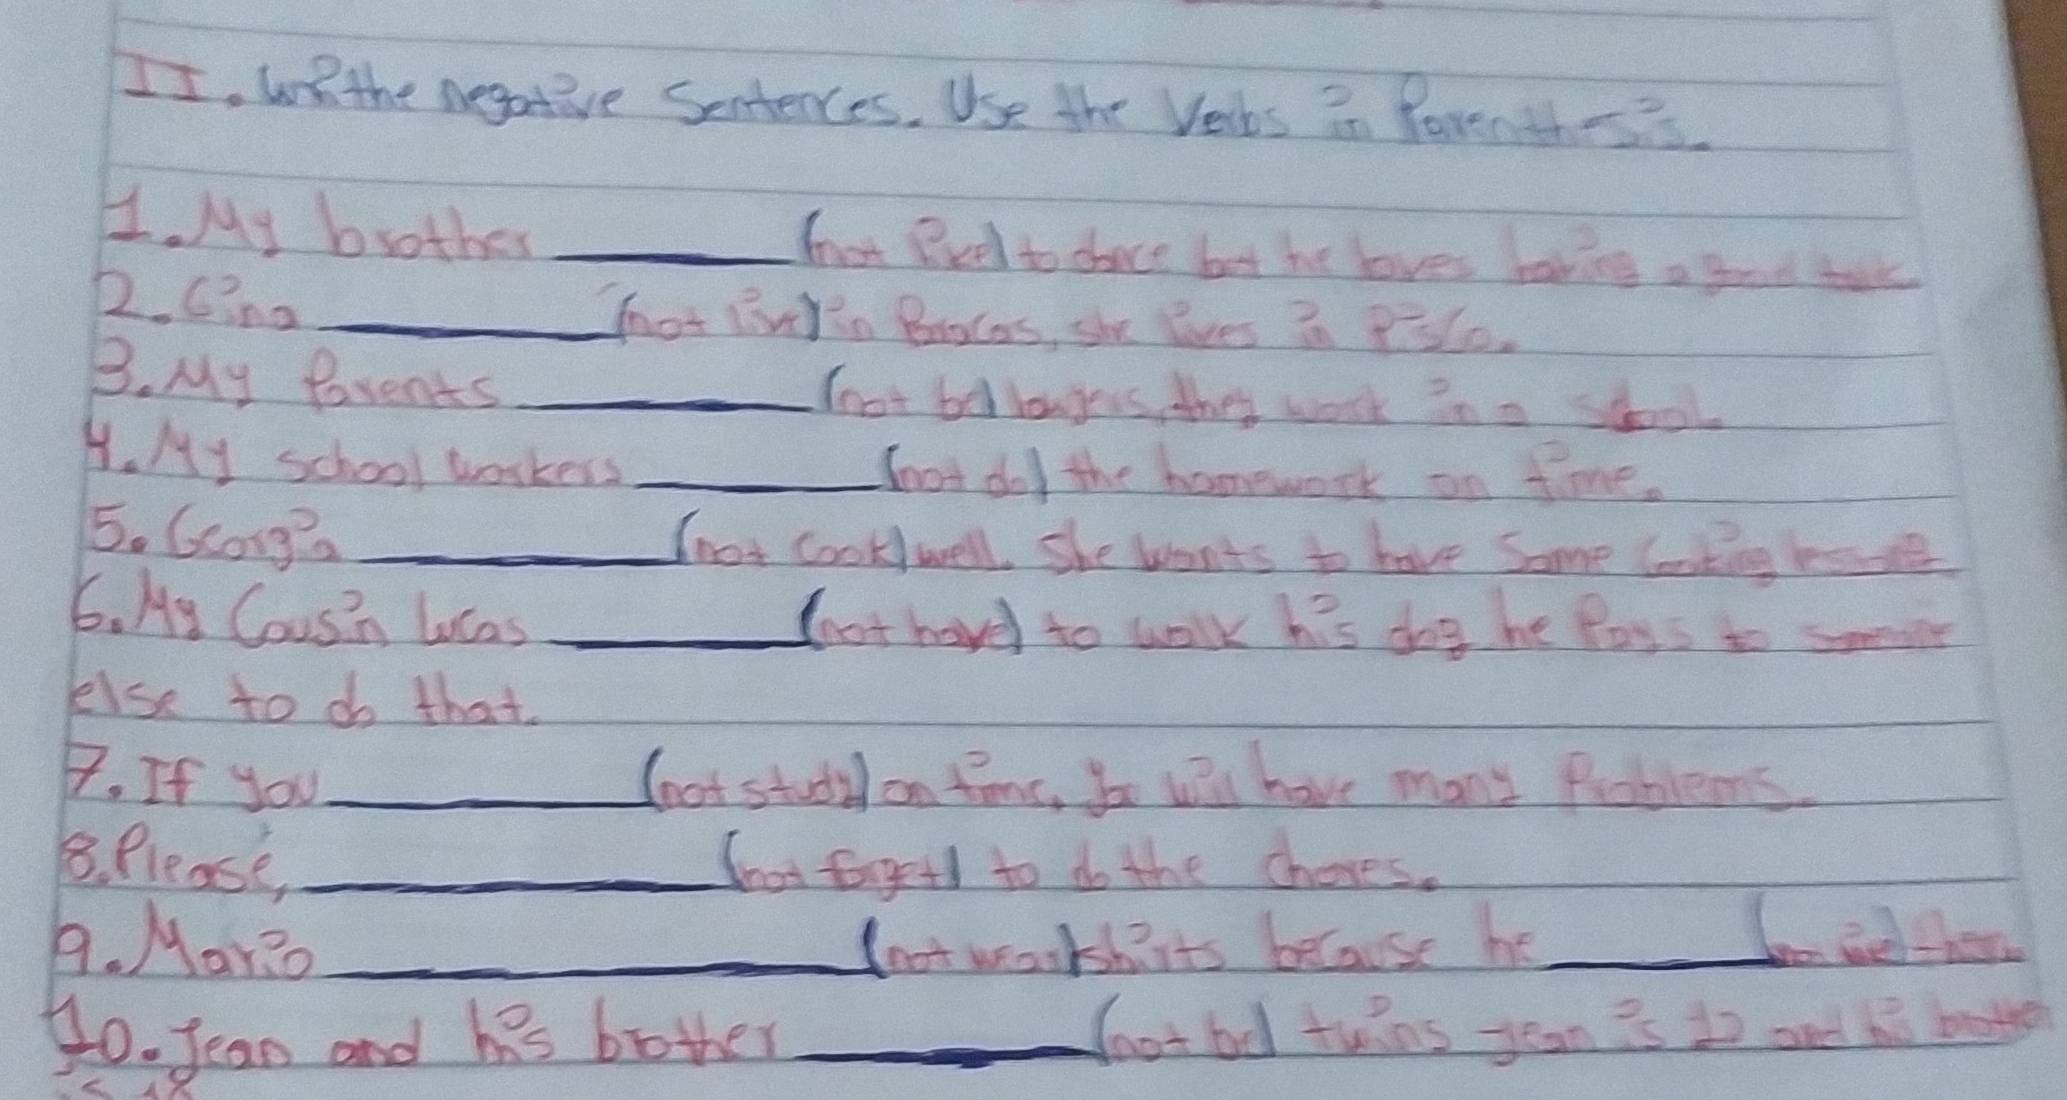 II. Write the negative Sentences. Use the Verbs in Parenthesis.
1. My brother ______ (not like) to dance but he loves having a good talk
2. Gina ______ (not live) in Bracos, she lives in Pisco.
3. My Parents ______ (not be) they work in a school
4. My school workers ______ (not do) the homework on time.
5. Georgia ______ (not cook) well. She wants to have Some Cooking
6. My Cousin Lucas ______ (not have) to walk his dog he Pays to
else to do that.
7. If you ______ (not study) on time. You will have many Problems.
8. Please, ______ (not forget) to do the chores.
9. Mario ______ (not wear) shirts because he ______
10. Jean and his brother ______ (not be) twins jean is and his brother
is 18